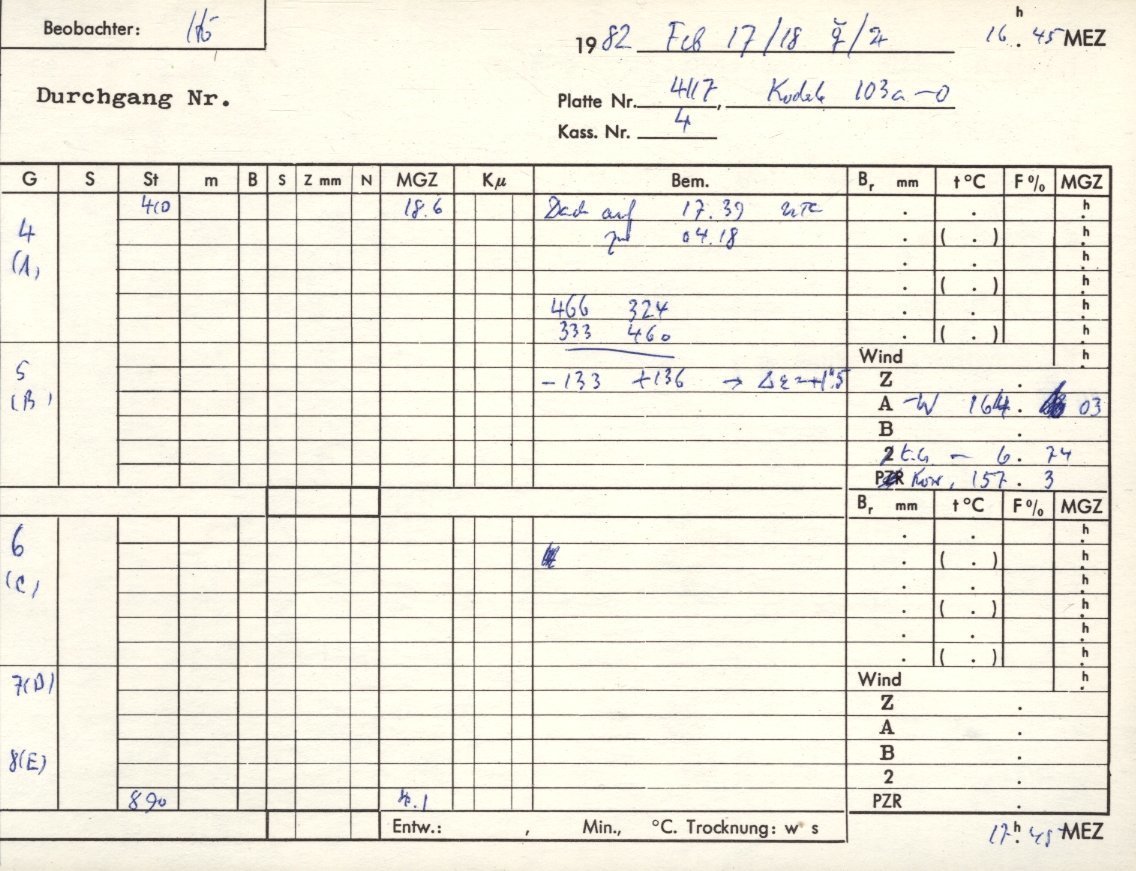 Beobachter: Hö
1982 Feb 17/18 ☿/♃ 16 h . 45 MEZ
Durchgang Nr.
Platte Nr. 4117, Kodak 103a-O
Kass. Nr. 4
G S St m B S Z mm N MGZ Kμ Bem. Br mm t °C F % MGZ
410 18.6 Dach auf 17.39 UTC . . h
4 zu 04.18 . ( . ) h
(A) . . h
. ( . ) h
466 324 . . h
333 460 . ( . ) h
Wind h
5 -133 +136 → Z .
(B) A -W 164. 03
B .
2 - 6. 74
PZR Korr, 157. 3
Br mm t °C F % MGZ
6 . . h
. ( . ) h
(C) . . h
. ( . ) h
. . h
. ( . ) h
7(D) Wind h
Z .
A .
8(E) B .
2 .
890 4.1 PZR .
Entw.: , Min., °C. Trocknung: w s 17 h . 45 MEZ